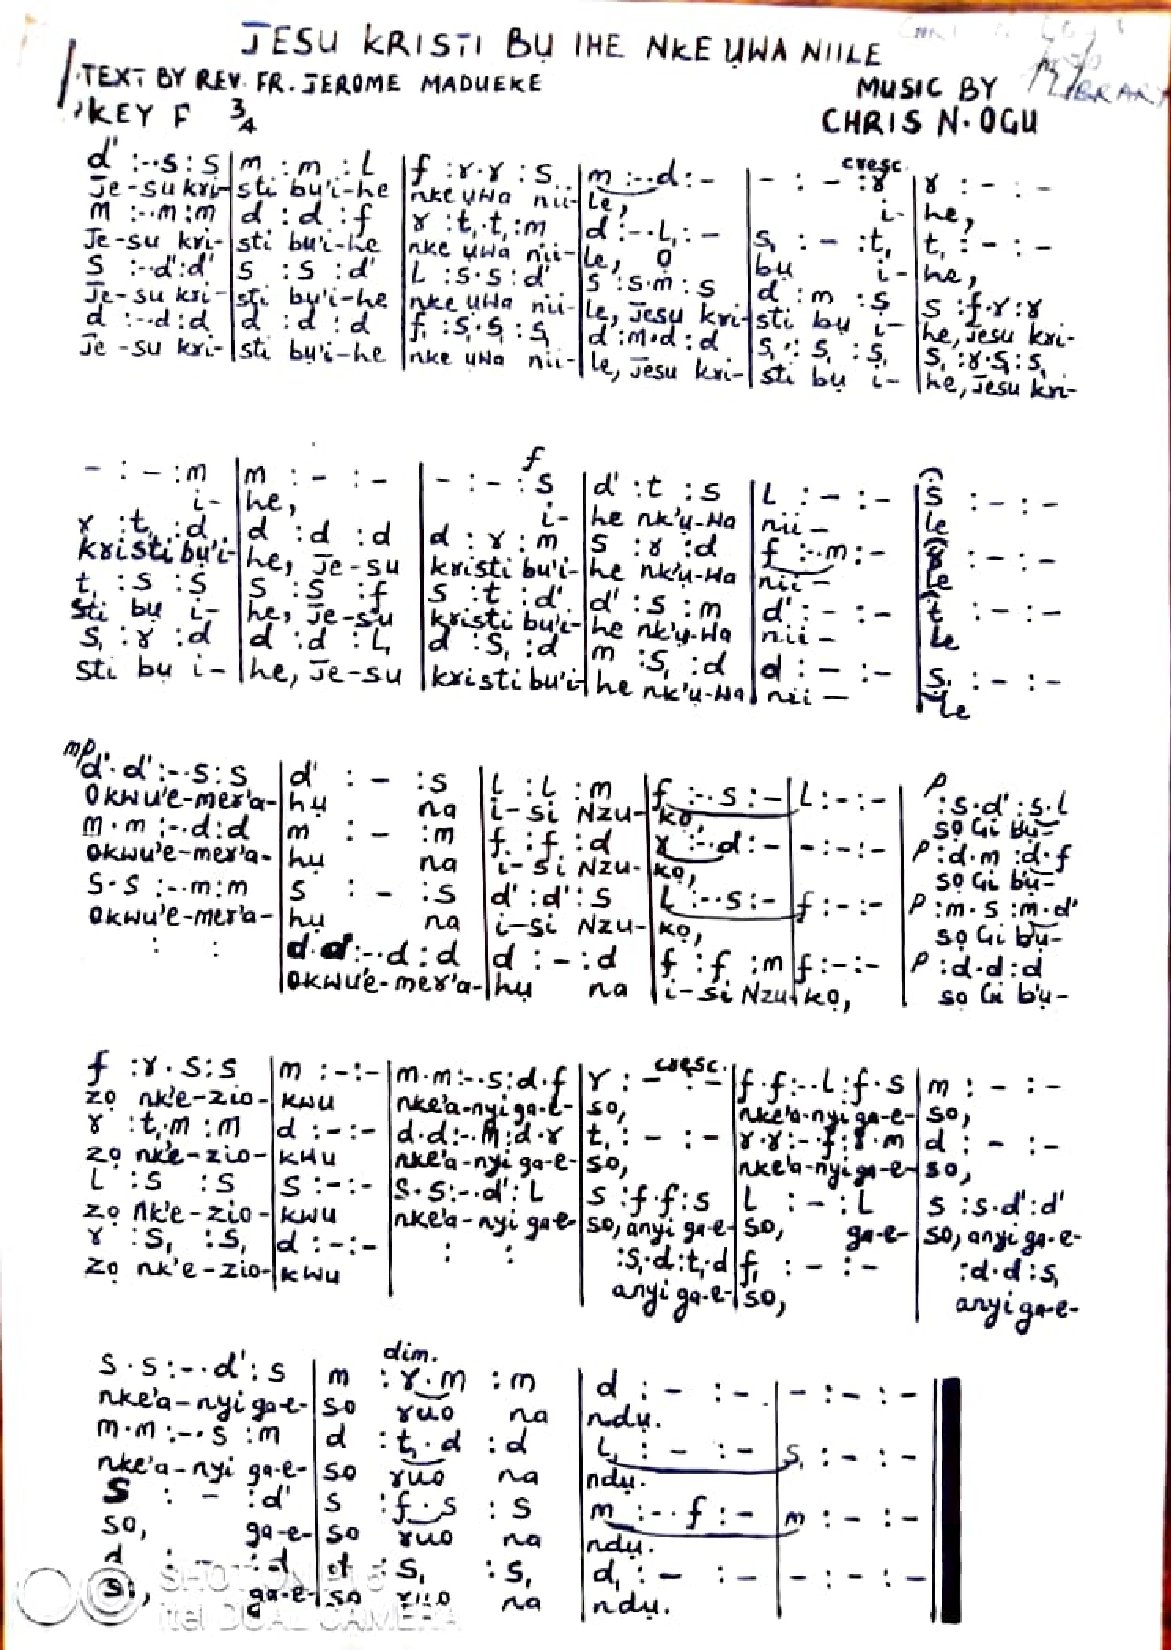 JESU KRISTI BỤ IHE NKE ỤWA NIILE
TEXT BY REV. FR. JEROME MADUEKE
MUSIC BY
KEY F 3/4
CHRIS N. OGU
cresc.
d' :-.s:s | m :m :L | f :r.r :s | m :-.d:- | - : - :r | r : - : -
Je-su kri- | sti bụ'i-he | nke ụwa nii- | le, | i- | he,
m :-.m:m | d :d :f | r :t,.t,:m | d:-.L,:- | s, : - :t, | t, : - : -
Je-su kri- | sti bụ'i-he | nke ụwa nii- | le, Ọ | bụ i- | he,
s :-.d':d' | s :s :d' | L :s.s :d' | s :s.m :s | d :m :s | s :f.r :r
Je-su kri- | sti bụ'i-he | nke ụwa nii- | le, Jesu kri- | sti bụ i- | he, Jesu kri-
d :-.d:d | d :d :d | f, :s,.s, :s, | d :m.d :d | s, :s, :s, | s, :r.s, :s,
Je-su kri- | sti bụ'i-he | nke ụwa nii- | le, Jesu kri- | sti bụ i- | he, Jesu kri-
f
- : - :m | m : - : - | - : - :s | d' :t :s | L : - : - | s : - : -
i- | he, | i- | he nk'ụ-wa | nii- | le
r :t, :d | d :d :d | d :r :m | s :r :d | f :-.m:- | r : - : -
kristi bụ'i- | he, Je-su | kristi bụ'i- | he nk'ụ-wa | nii- | le
t, :s :s | s :s :f | s :t :d' | d' :s :m | d' : - : - | t : - : -
sti bụ i- | he, Je-su | kristi bụ'i- | he nk'ụ-wa | nii- | le
s, :r :d | d :d :L, | d :s, :d | m :s, :d | d : - : - | s, : - : -
sti bụ i- | he, Je-su | kristi bụ'i- | he nk'ụ-wa | nii- | le
mp
p
d'.d' :-.s:s | d' : - :s | L :L :m | f :-.s:- | L:-:- | :s.d' :s.l
Okwu'e-mer'a- | hụ na | i-si Nzu- | kọ | sọ Gi bụ-
m.m :-.d:d | m : - :m | f :f :d | r :-.d:- | -:-:- | p :d.m :d.f
Okwu'e-mer'a- | hụ na | i-si Nzu- | kọ, | sọ Gi bụ-
s.s :-.m:m | s : - :s | d' :d' :s | L :-.s:- | f:-:- | p :m.s :m.d'
Okwu'e-mer'a- | hụ na | i-si Nzu- | kọ, | sọ Gi bụ-
: : | d.d:-.d:d | d : - :d | f :f :m | f:-:- | p :d.d :d
Okwu'e-mer'a- | hụ na | i-si Nzu- | kọ, | sọ Gi bụ-
cresc.
f :r.s:s | m :-:- | m.m:-.s:d.f | r : - : - | f.f:-.L:f.s | m : - : -
zọ nk'e-zio- | kwu | nke'a-nyi ga-e- | so, | nke'a-nyi ga-e- | so,
r :t,.m :m | d :-:- | d.d:-.m:d.r | t, : - : - | r.r:-.f:r.m | d : - : -
zọ nk'e-zio- | kwu | nke'a-nyi ga-e- | so, | nke'a-nyi ga-e- | so,
L :s :s | s :-:- | s.s:-.d':L | s :f.f:s | L : - :L | s :s.d':d'
zọ nk'e-zio- | kwu | nke'a-nyi ga-e- | so, anyi ga-e- | so, ga-e- | so, anyi ga-e-
r :s, :s, | d :-:- | : : | :s,.d:t,.d | f, : - : - | :d.d:s,
zọ nk'e-zio- | kwu | anyi ga-e- | so, | anyi ga-e-
dim.
s.s:-.d':s | m :r.m :m | d : - : - | - : - : -
nke'a-nyi ga-e- | so ruo na | ndụ.
m.m:-.s :m | d :t,.d :d | L, : - : - | s, : - : -
nke'a-nyi ga-e- | so ruo na | ndụ.
s : - :d' | s :f.s :s | m :-.f :- | m : - : -
so, ga-e- | so ruo na | ndụ.
d : - :d | d :s, :s, | d, : - : - | - : - : -
ga-e- | so ruo na | ndụ.
itel DUAL CAMERA